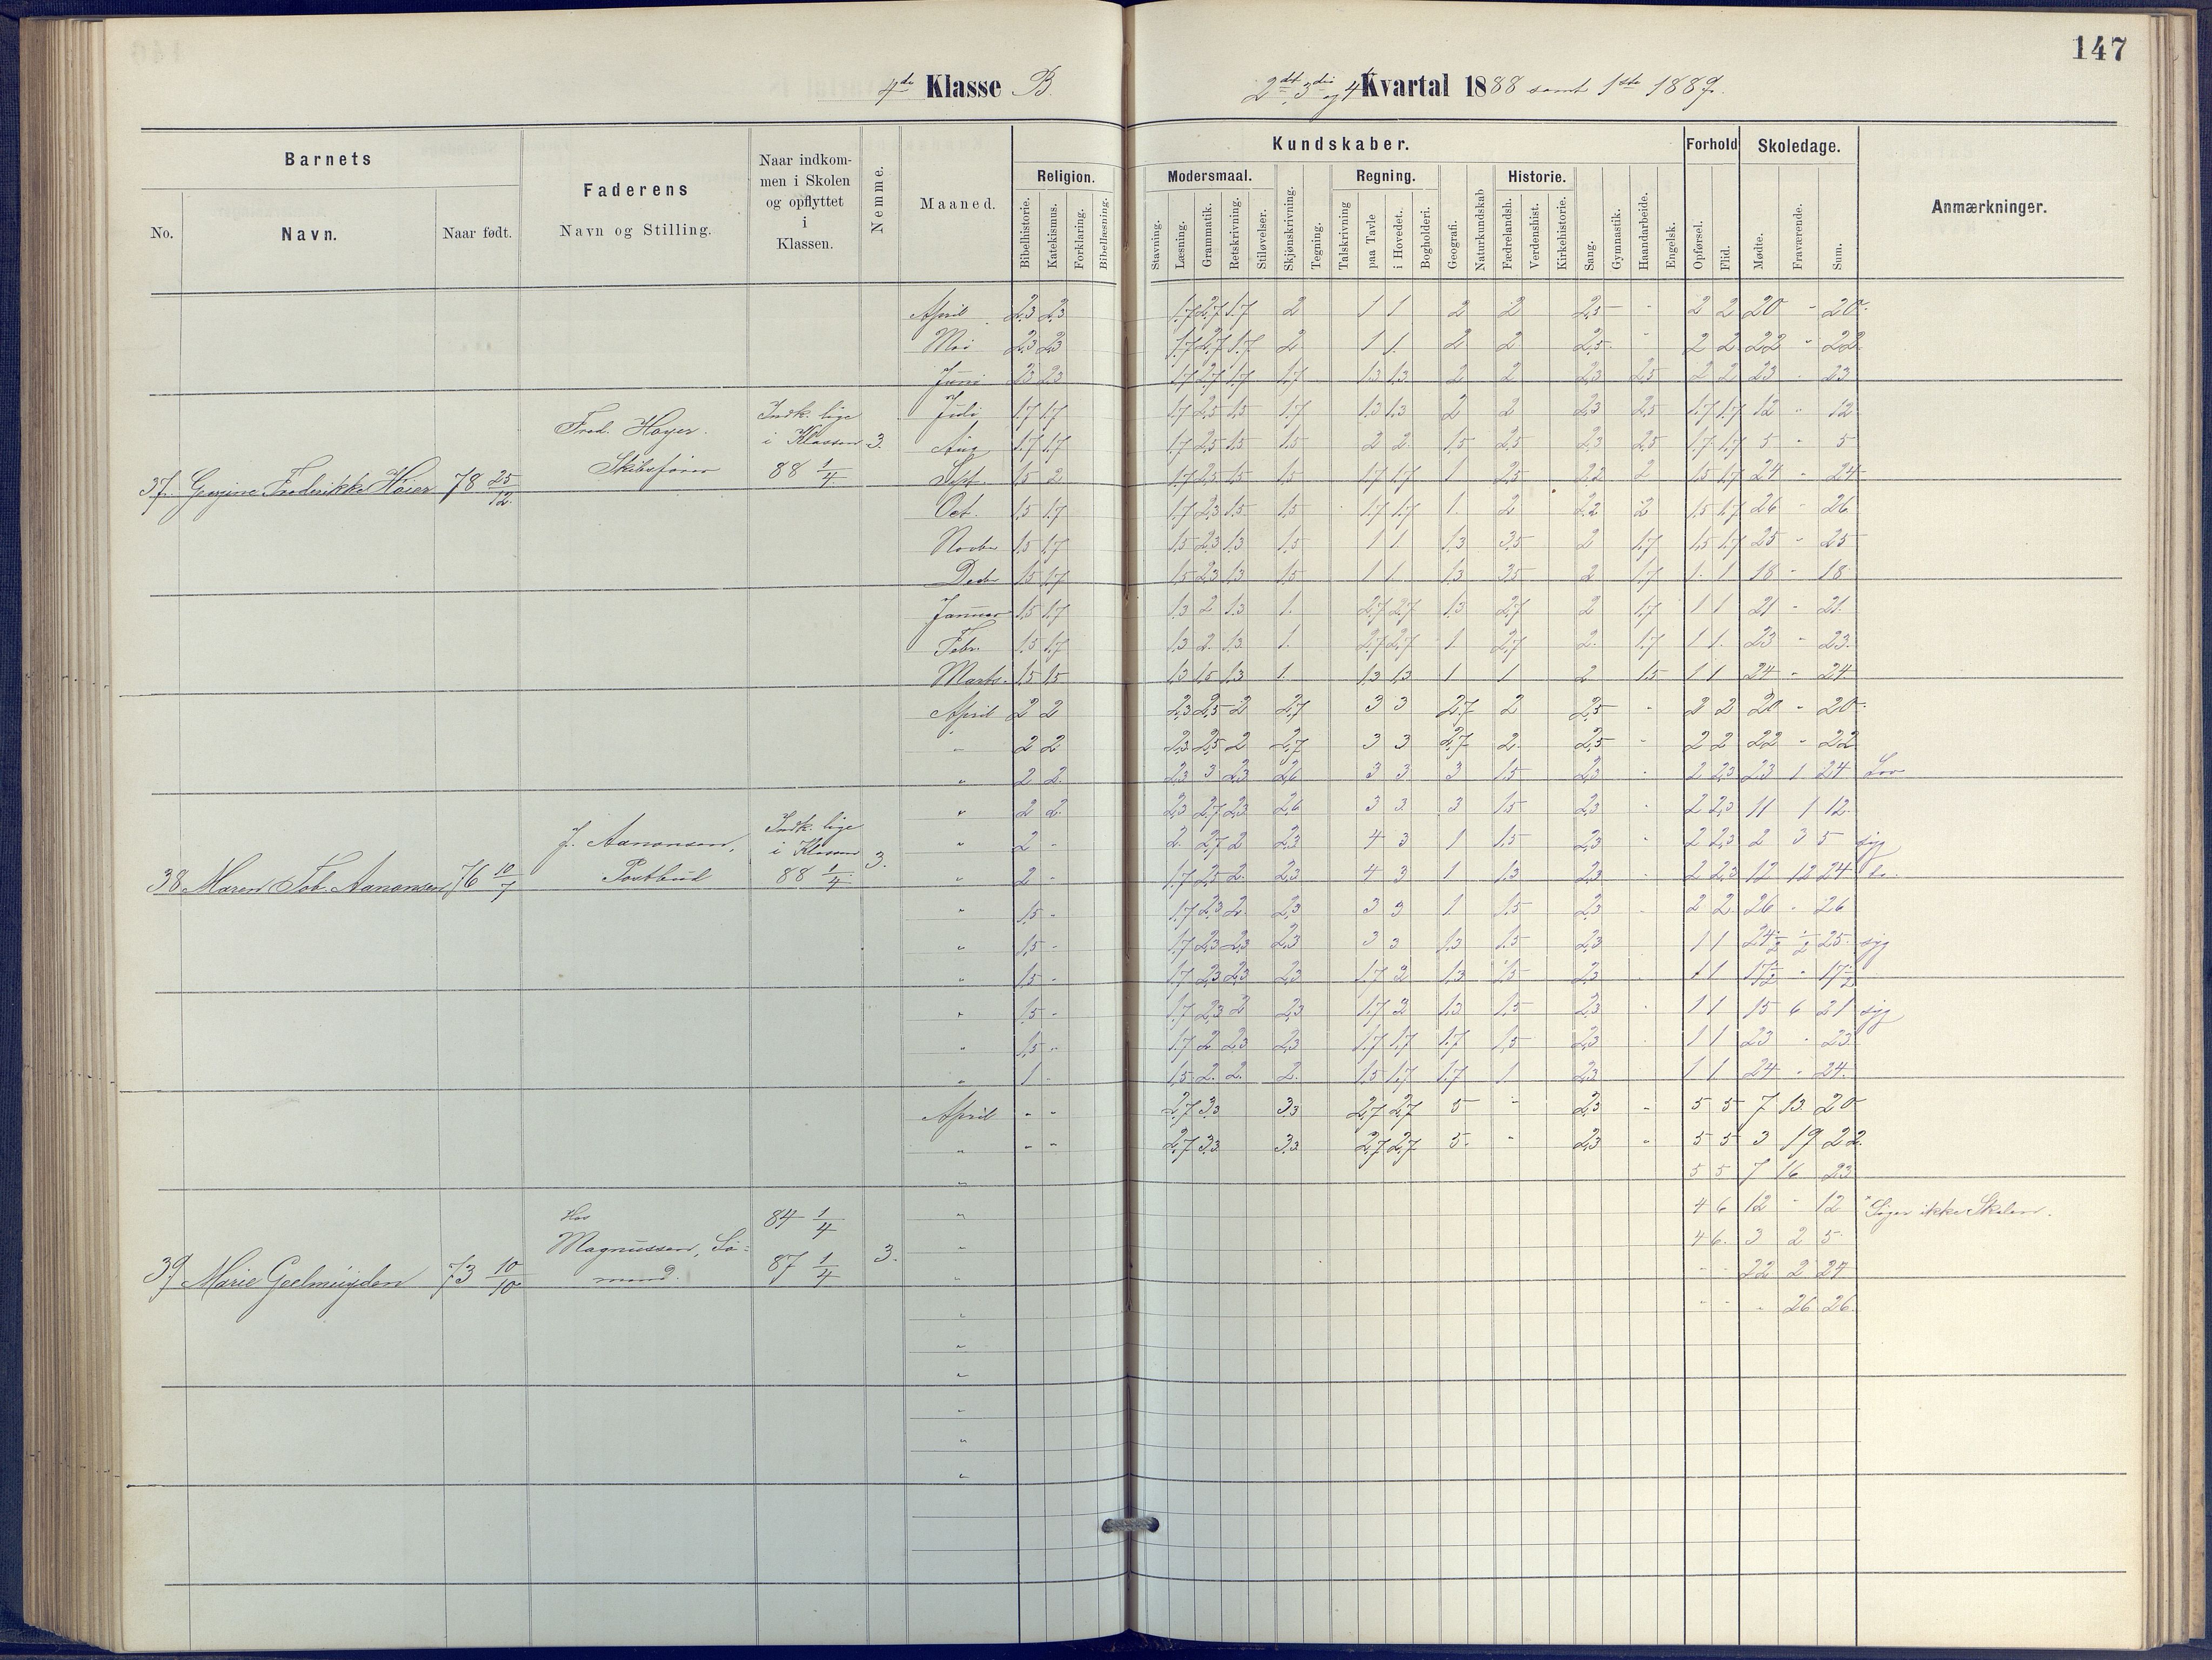 147
4de Klasse B.
2det, 3die og 4de Kvartal 1888 samt 1ste 1889.
Barnets
No.
Navn.
Naar født.
Faderens
Navn og Stilling.
Naar indkom-
men i Skolen
og opflyttet
i
Klassen.
Nemme.
Maaned.
Kundskaber.
Religion.
Bibelhistorie.
Katekismus.
Forklaring.
Bibellæsning.
Modersmaal.
Stavning.
Læsning.
Grammatik.
Retskrivning.
Stiløvelser.
Skjønskrivning.
Tegning.
Regning.
Talskrivning
paa Tavle
i Hovedet.
Bogholderi.
Geografi.
Naturkundskab
Historie.
Fædrelandsh.
Verdenshist.
Kirkehistorie.
Sang.
Gymnastik.
Haandarbeide.
Engelsk.
Forhold
Opførsel.
Flid.
Skoledage.
Mødte.
Fraværende.
Sum.
Anmærkninger.
April 2,3 2,3 1,7 2,7 1,7 2 1 1 2 2 2,5 - 2 2 20 - 20
Mai 2,3 2,3 1,7 2,7 1,7 2 1 1 2 2 2,5 - 2 2 22 - 22
Juni 2,3 2,3 1,7 2,7 1,7 1,7 1,3 1,3 2 2 2,3 2,5 2 2 23 - 23
Juli 1,7 1,7 1,7 2,5 1,5 1,7 1,3 1,3 2 2 2,3 2,5 1,7 1,7 12 - 12
Aug 1,7 1,7 1,7 2,5 1,5 1,5 2 2 1,5 2,5 2,3 2,5 1,7 1,7 5 - 5
37. Georgine Fredrikke Høier 78 25/12. Fred. Høyer. Skibsfører Indk. lige i Klassen 88 1/4 3.
Sept. 1,5 2 1,7 2,5 1,5 1,5 1,7 1,7 1 2,5 2,2 2 1,5 1,7 24 - 24
Oct. 1,5 1,7 1,7 2,3 1,5 1,5 1,7 1,7 1 2 2,2 2 1,5 1,7 26 - 26
Novbr 1,5 1,7 1,5 2,3 1,3 1,5 1 1 1,3 3,5 2 1,7 1,5 1,7 25 - 25
Decbr 1,5 1,7 1,5 2,3 1,3 1,5 1 1 1,3 3,5 2 1,7 1 1 18 - 18
Januar 1,5 1,7 1,3 2 1,3 1. 2,7 2,7 1,3 2,7 2 1,7 1 1 21 - 21
Febr. 1,5 1,7 1,3 2 1,3 1. 2,7 2,7 1 2,7 2 1,7 1 1 23 - 23
Marts. 1,5 1,5 1,3 1,5 1,3 1 1,3 1,3 1 1 2 1,5 1 1 24 - 24
April 2 2 2,3 2,5 2 2,7 3 3 2,7 2 2,5 - 2 2 20 - 20
" 2 2 2,3 2,5 2 2,7 3 3 2,7 2 2,5 - 2 2 22 - 22
" 2 2 2,3 3 2,3 2,6 3 3 3 1,5 2,3 - 2 2,3 23 1 24 Lov
" 2 2 2,3 2,7 2,3 2,6 3 3 3 1,5 2,3 - 2 2,3 11 1 12
" 2 - 2 2,7 2 2,3 4 3 1 1,5 2,3 - 2 2,3 2 3 5 syg
38 Maren Tob. Aanonsen 76 10/7 J. Aanonsen, Postbud Indk. lige i Klassen 88 1/4 3.
" 2 - 1,7 2,5 2 2,3 4 3 1 1,3 2,3 - 2 2,3 12 12 24
" 1,5 - 1,7 2,3 2 2,3 3 3 1 1,5 2,3 - 2 2 26 - 26
" 1,5 - 1,7 2,3 2,3 2,3 3 3 1,3 1,5 2,3 1 1 24 1/2 1/2 25 syg
" 1,5 - 1,7 2,3 2,3 2,3 1,7 2 1,3 1,5 2,3 1 1 17 1/2 - 17 1/2
" 1,5 - 1,7 2,3 2 2,3 1,7 2 1,3 1,5 2,3 - 1 1 15 6 21 syg
" 1,5 - 1,7 2 2,3 2,3 1,7 1,7 1,7 1,5 2,3 1 1 23 - 23
" 1 - 1,5 2 2 2 1,5 1,7 1,7 1 2,3 1 1 24 - 24
April - - 2,7 3,3 3,3 2,7 2,7 5 - 2,3 - 5 5 7 13 20
" - - 2,7 3,3 3,3 2,7 2,7 5 - 2,3 - 5 5 3 19 22
" 5 5 7 16 23
" 4 6 12 - 12 "Søger ikke Skolen.
" 4 6 3 2 5
39 Marie Geelmuyden 73 10/10 Hos Magnussen, Sømand. 84 1/4 87 1/4 3.
" - - 22 2 24
" - - - 26 26
"
"
"
"
"